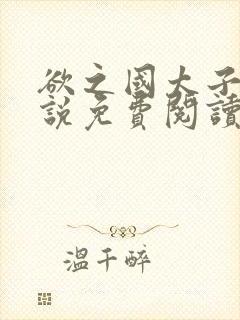 欲之國太子
說免費閱讀
溫千醉